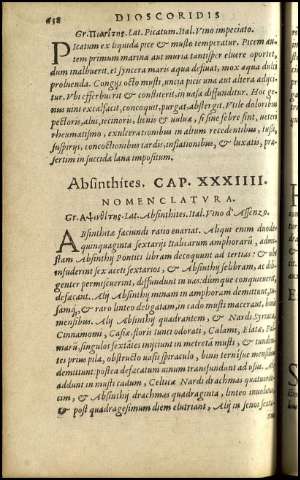 638 DIOSCORIDIS
Gr. Lat. Picatum. Ital. Vino impeciato.
Picatum ex liquida pice & musto temperatur. Picem autem
primum marina aut muria tantisper eluere oportet,
dum inalbuerit, ei syncera maris aqua desinat, mox aqua dulci
proluenda. Congijs octo musti, uncia picis una aut altera adijcitur.
Vbi efferbuerit & constiterit, in uasa diffunditur. Hoc genus
uini excalfacit, concoquit, purgat, abstergit. Vtile doloribus
pectoris, alui, iecinoris, lienis & uuluæ, si sine febre sint, uteri
rheumatismo, exulcerationibus in altum recedentibus, tussi,
suspirijs, concoctionibus tardis, inflationibus, & luxatis, præsertim
in succida lana impositum.
Absinthites. CAP. XXXIIII.
NOMENCLATVRA.
Lat. Absinthites. Ital. Vino d'Assenzo.
Absinthitæ faciundi ratio euariat. Aliqui enim
quinquaginta sextarijs Italicarum amphorarū,
Absinthij Pontici libram decoquunt ad tertias: &
insuderint sex aceti sextarios, & Absinthij selibram, ac
genter permiscuerint, diffundunt in uas: dumque
defæcant. Alij Absinthij minam in amphoram demittunt,
& raro linteo deligatam, in cado musti macerant,
mensibus. Alij Absinthij quadrantem, & Nardi
Cinnamomi, Casiæ, floris iunci odorati, Calami,
singulos sextātes inijciunt in metretā musti, &
prius pila, obstructo uasis spiraculo, binis ternisue
demittunt: postea defæcatum uinum transfundunt ad
addunt in musti cadum, Celticæ Nardi drachmas
& Absinthij drachmas quadraginta, linteo
& post quadragesimum diem elutriant. Alij in